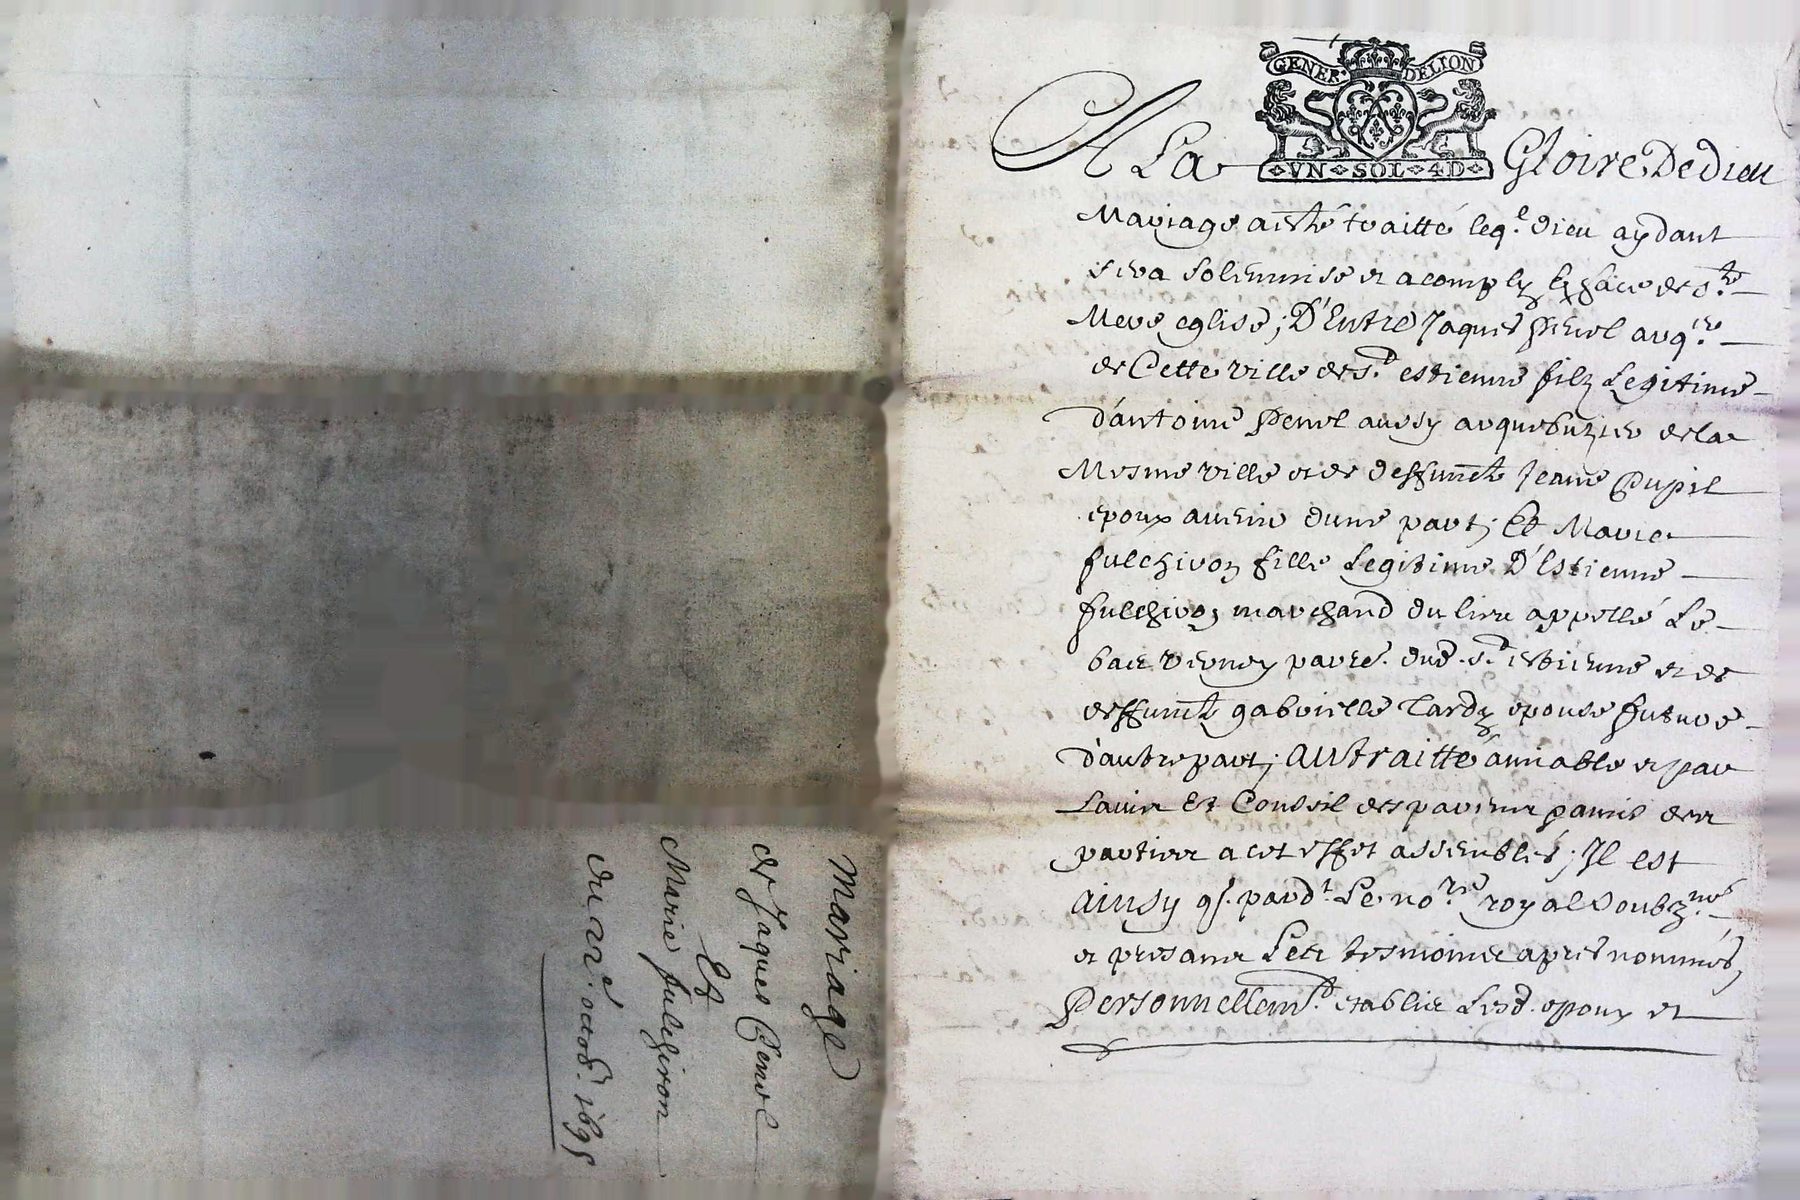 Mariage
de Jaques Penel
Et
Marie fulchiron
du 21e. octob. 1695
GENER DELION
VN SOL 4D
A La Gloire De dieu
Mariage a esté traitté leql. dieu aydant
sera solemnisé et acomply En face de ste.
Mere eglise; D'Entre Jaques Penel arqer.
de Cette ville de st. estienne filz Legitime
d'antoine Penel aussy arquebuzier de la
Mesme ville et de deffuncte Jeane Pupil
epoux avenir dune part; Et Marie
fulchiron fille Legitime D'Estienne
fulchiron marchand du lieu appellé Le
bas vernay parre. dud. st. estienne et de
deffuncte gabrielle Tardy epouse future
d'autre part; au traitté amiable et par
Lavis Et Conseil des parens & amis des
parties a cet effet assemblés; Il est
ainsy q. pardt. Le nore. royal soubzné.
et presans Les tesmoins apres nommés,
Personnellemt. establis Lesd. epoux et